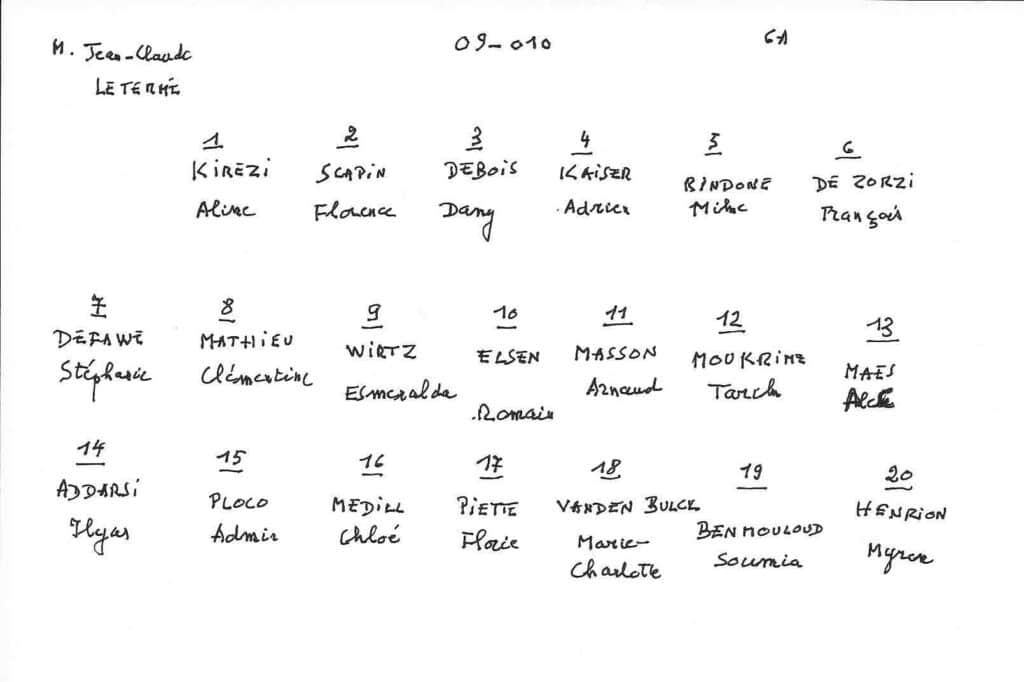 M. Jean-Claude 09-010 6A
LETERMÉ
1 2 3 4 5 6
KIREZI SCAPIN DEBOIS KAISER RINDONE DE ZORZI
Aline Florence Dany Adrien Milne François
7 8 9 10 11 12 13
DEFAWE MATHIEU WIRTZ ELSEN MASSON MOUKRIME MAES
Stéphanie Clémentine Esmeralda Romain Arnaud Tarek
14 15 16 17 18 19 20
ADDARSI PLOCO MEDILL PIETTE VANDEN BULCK BENMOULOUD HENRION
Ilyas Admir Chloé Florie Marie- Soumia Myron
Charlotte